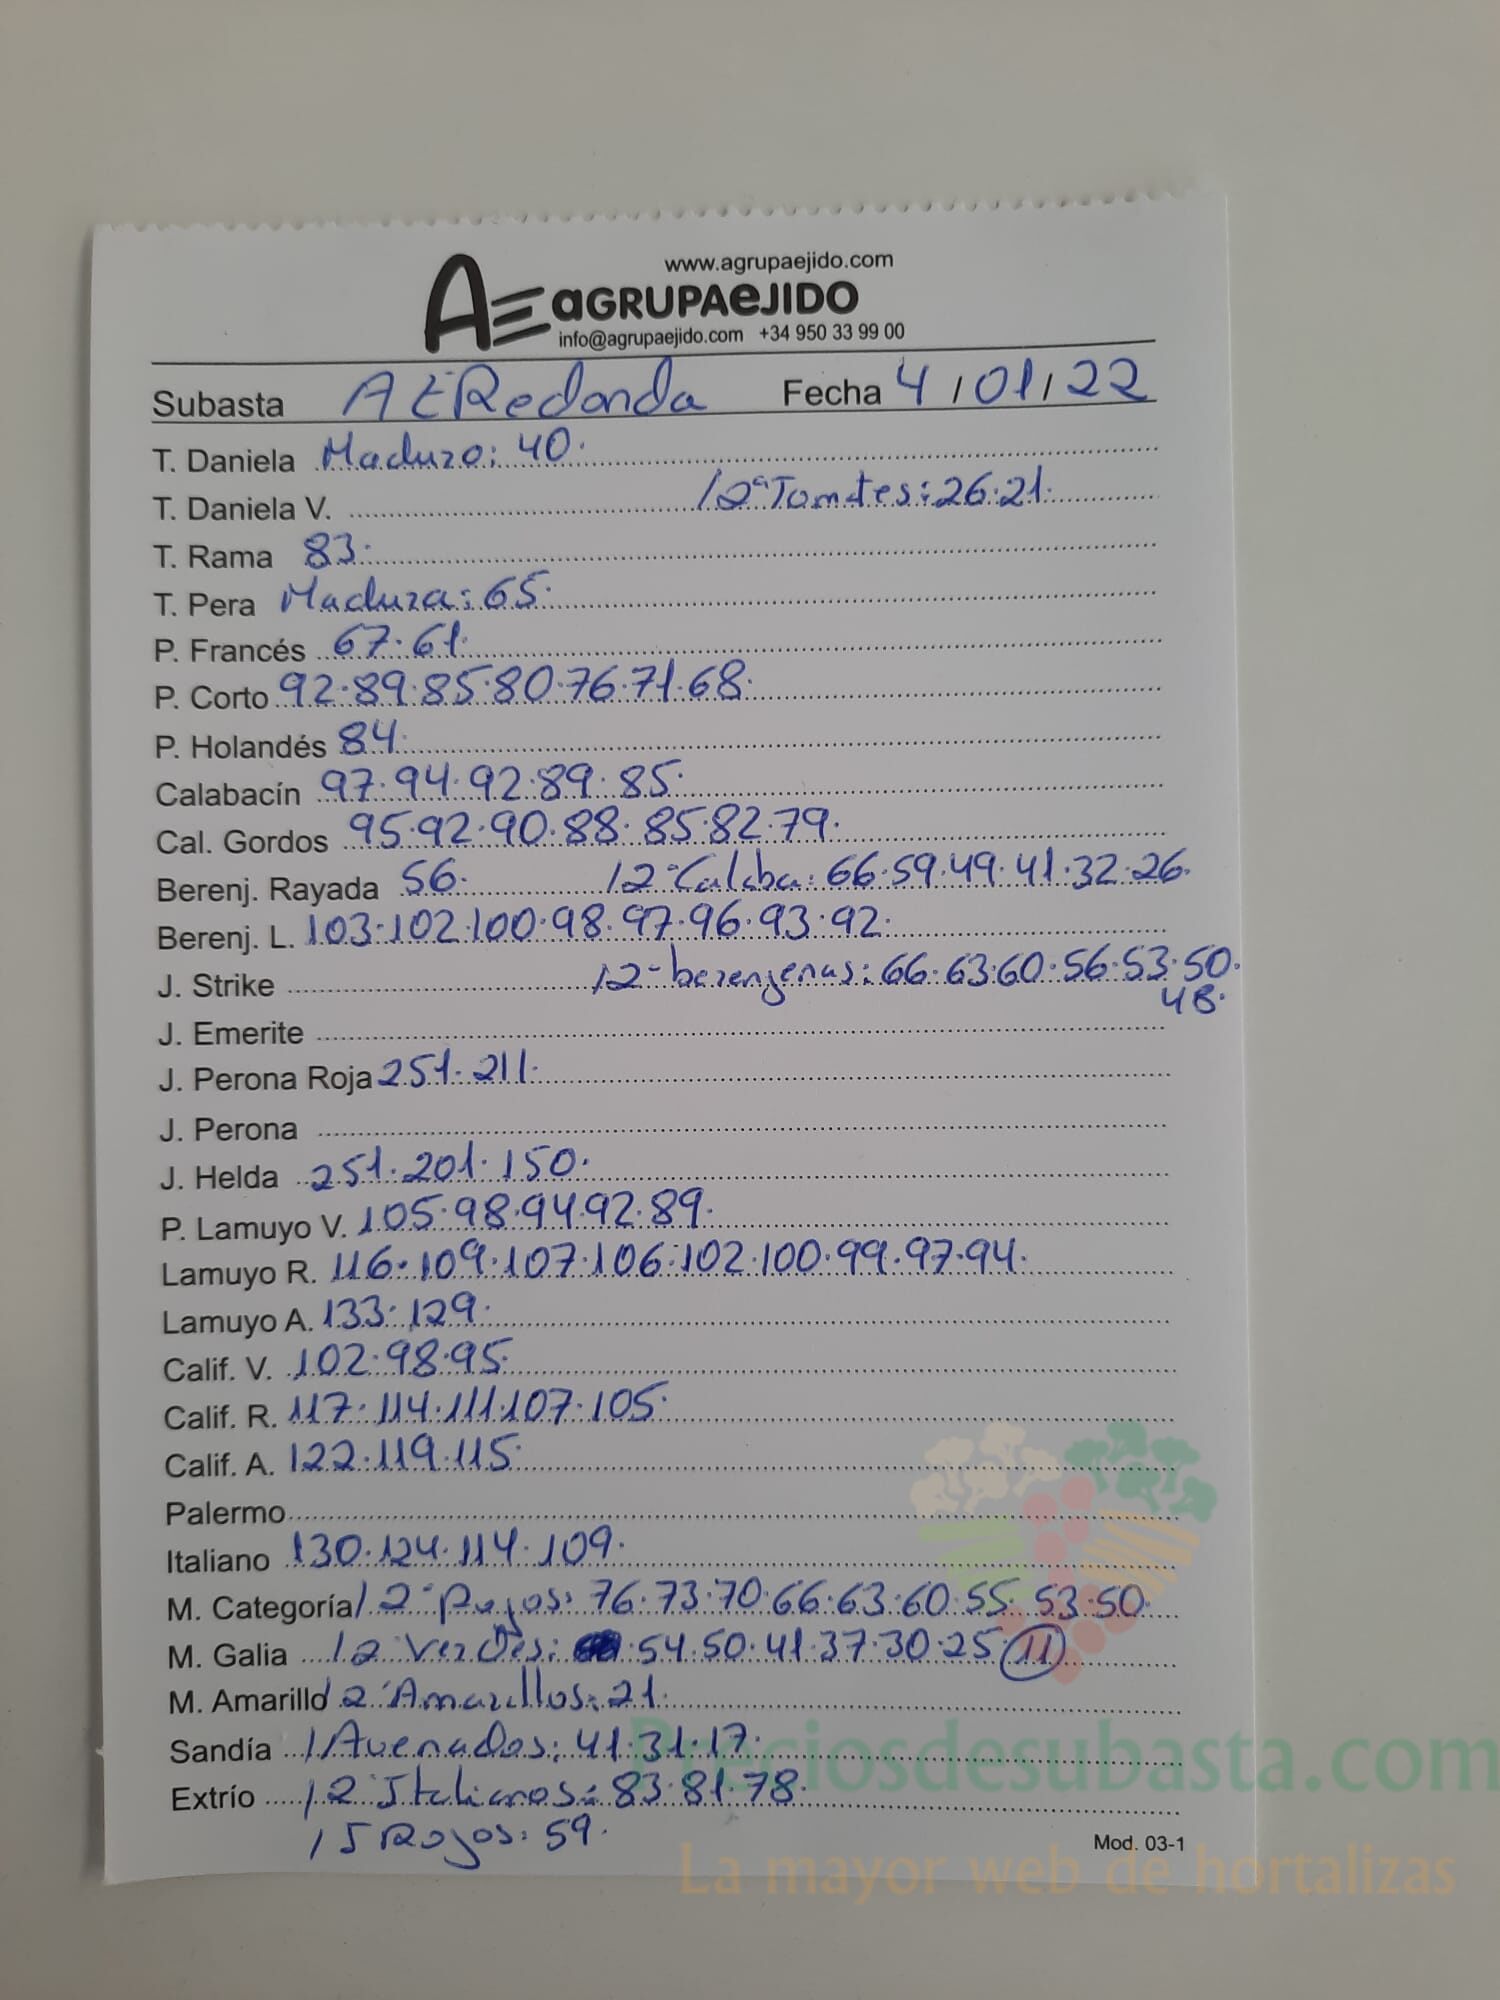 www.agrupaejido.com
AE aGRUPAeJIDO
info@agrupaejido.com +34 950 33 99 00
Subasta AE Redonda Fecha 4/01/22
T. Daniela Maduro: 40.
T. Daniela V. /2ª Tomates: 26.21.
T. Rama 83.
T. Pera Madura: 65.
P. Francés 67.61.
P. Corto 92.89.85.80.76.71.68.
P. Holandés 84.
Calabacín 97.94.92.89.85.
Cal. Gordos 95.92.90.88.85.82.79.
Berenj. Rayada 56. /2ª Calaba: 66.59.49.41.32.26.
Berenj. L. 103.102.100.98.97.96.93.92.
J. Strike /2ª berengenas: 66.63.60.56.53.50.
48.
J. Emerite
J. Perona Roja 251.211.
J. Perona
J. Helda 251.201.150.
P. Lamuyo V. 105.98.94.92.89.
Lamuyo R. 116.109.107.106.102.100.99.97.94.
Lamuyo A. 133.129.
Calif. V. 102.98.95.
Calif. R. 117.114.111.107.105.
Calif. A. 122.119.115.
Palermo
Italiano 130.124.114.109.
M. Categoría /2ª Rojos: 76.73.70.66.63.60.55.53.50.
M. Galia /2ª Verdes: 54.50.41.37.30.25 (11)
M. Amarillo /2ª Amarillos: 21.
Sandía /Avenados: 41.31.17.
Extrío /2ª Italianos: 83.81.78.
/J Rojos: 59.
Mod. 03-1
Preciosdesubasta.com
La mayor web de hortalizas